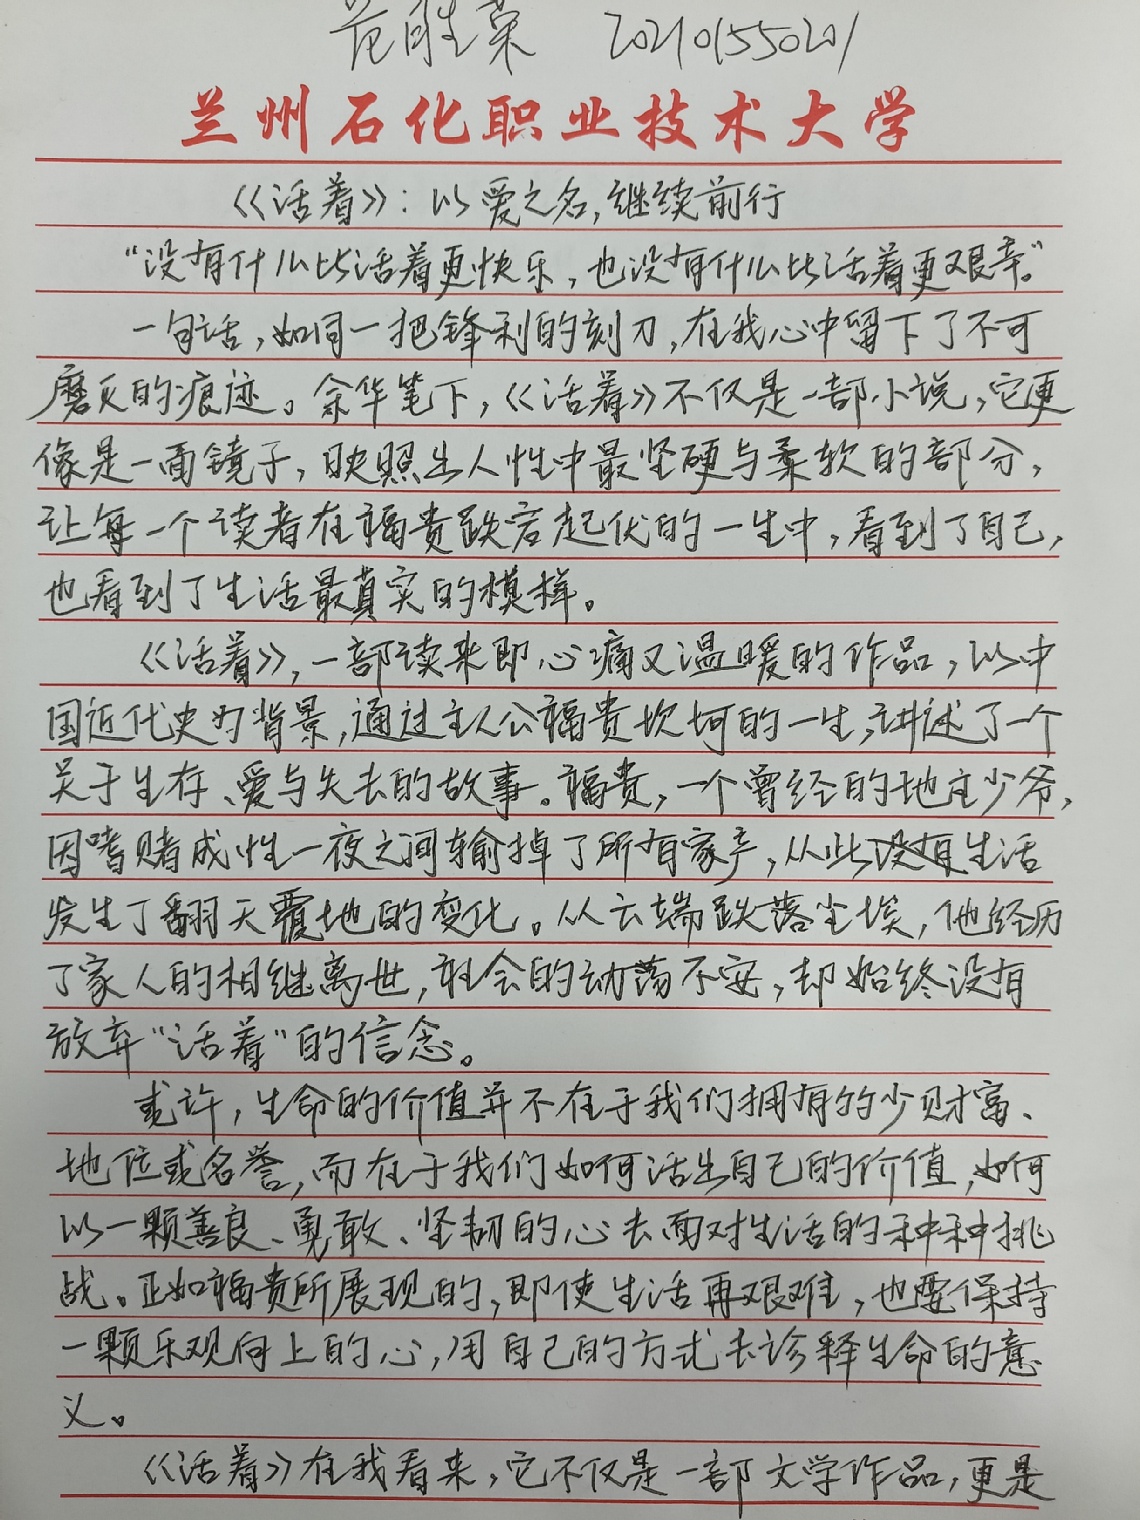 范胜荣 202101550201
兰州石化职业技术大学
《活着》:以爱之名,继续前行
“没有什么比活着更快乐,也没有什么比活着更艰辛。”
一句话,如同一把锋利的刻刀,在我心中留下了不可
磨灭的痕迹。余华笔下,《活着》不仅是一部小说,它更
像是一面镜子,映照出人性中最坚硬与柔软的部分,
让每一个读者在福贵跌宕起伏的一生中,看到了自己,
也看到了生活最真实的模样。
《活着》,一部读来即心痛又温暖的作品,以中
国近代史为背景,通过主人公福贵坎坷的一生,讲述了一个
关于生存、爱与失去的故事。福贵,一个曾经的地主少爷,
因嗜赌成性一夜之间输掉了所有家产,从此没有生活
发生了翻天覆地的变化。从云端跌落尘埃,他经历
了家人的相继离世,社会的动荡不安,却始终没有
放弃“活着”的信念。
或许,生命的价值并不在于我们拥有的少财富、
地位或名誉,而在于我们如何活出自己的价值,如何
以一颗善良、勇敢、坚韧的心去面对生活的种种挑
战。正如福贵所展现的,即使生活再艰难,也要保持
一颗乐观向上的心,用自己的方式去诊释生命的意
义。
《活着》在我看来,它不仅是一部文学作品,更是